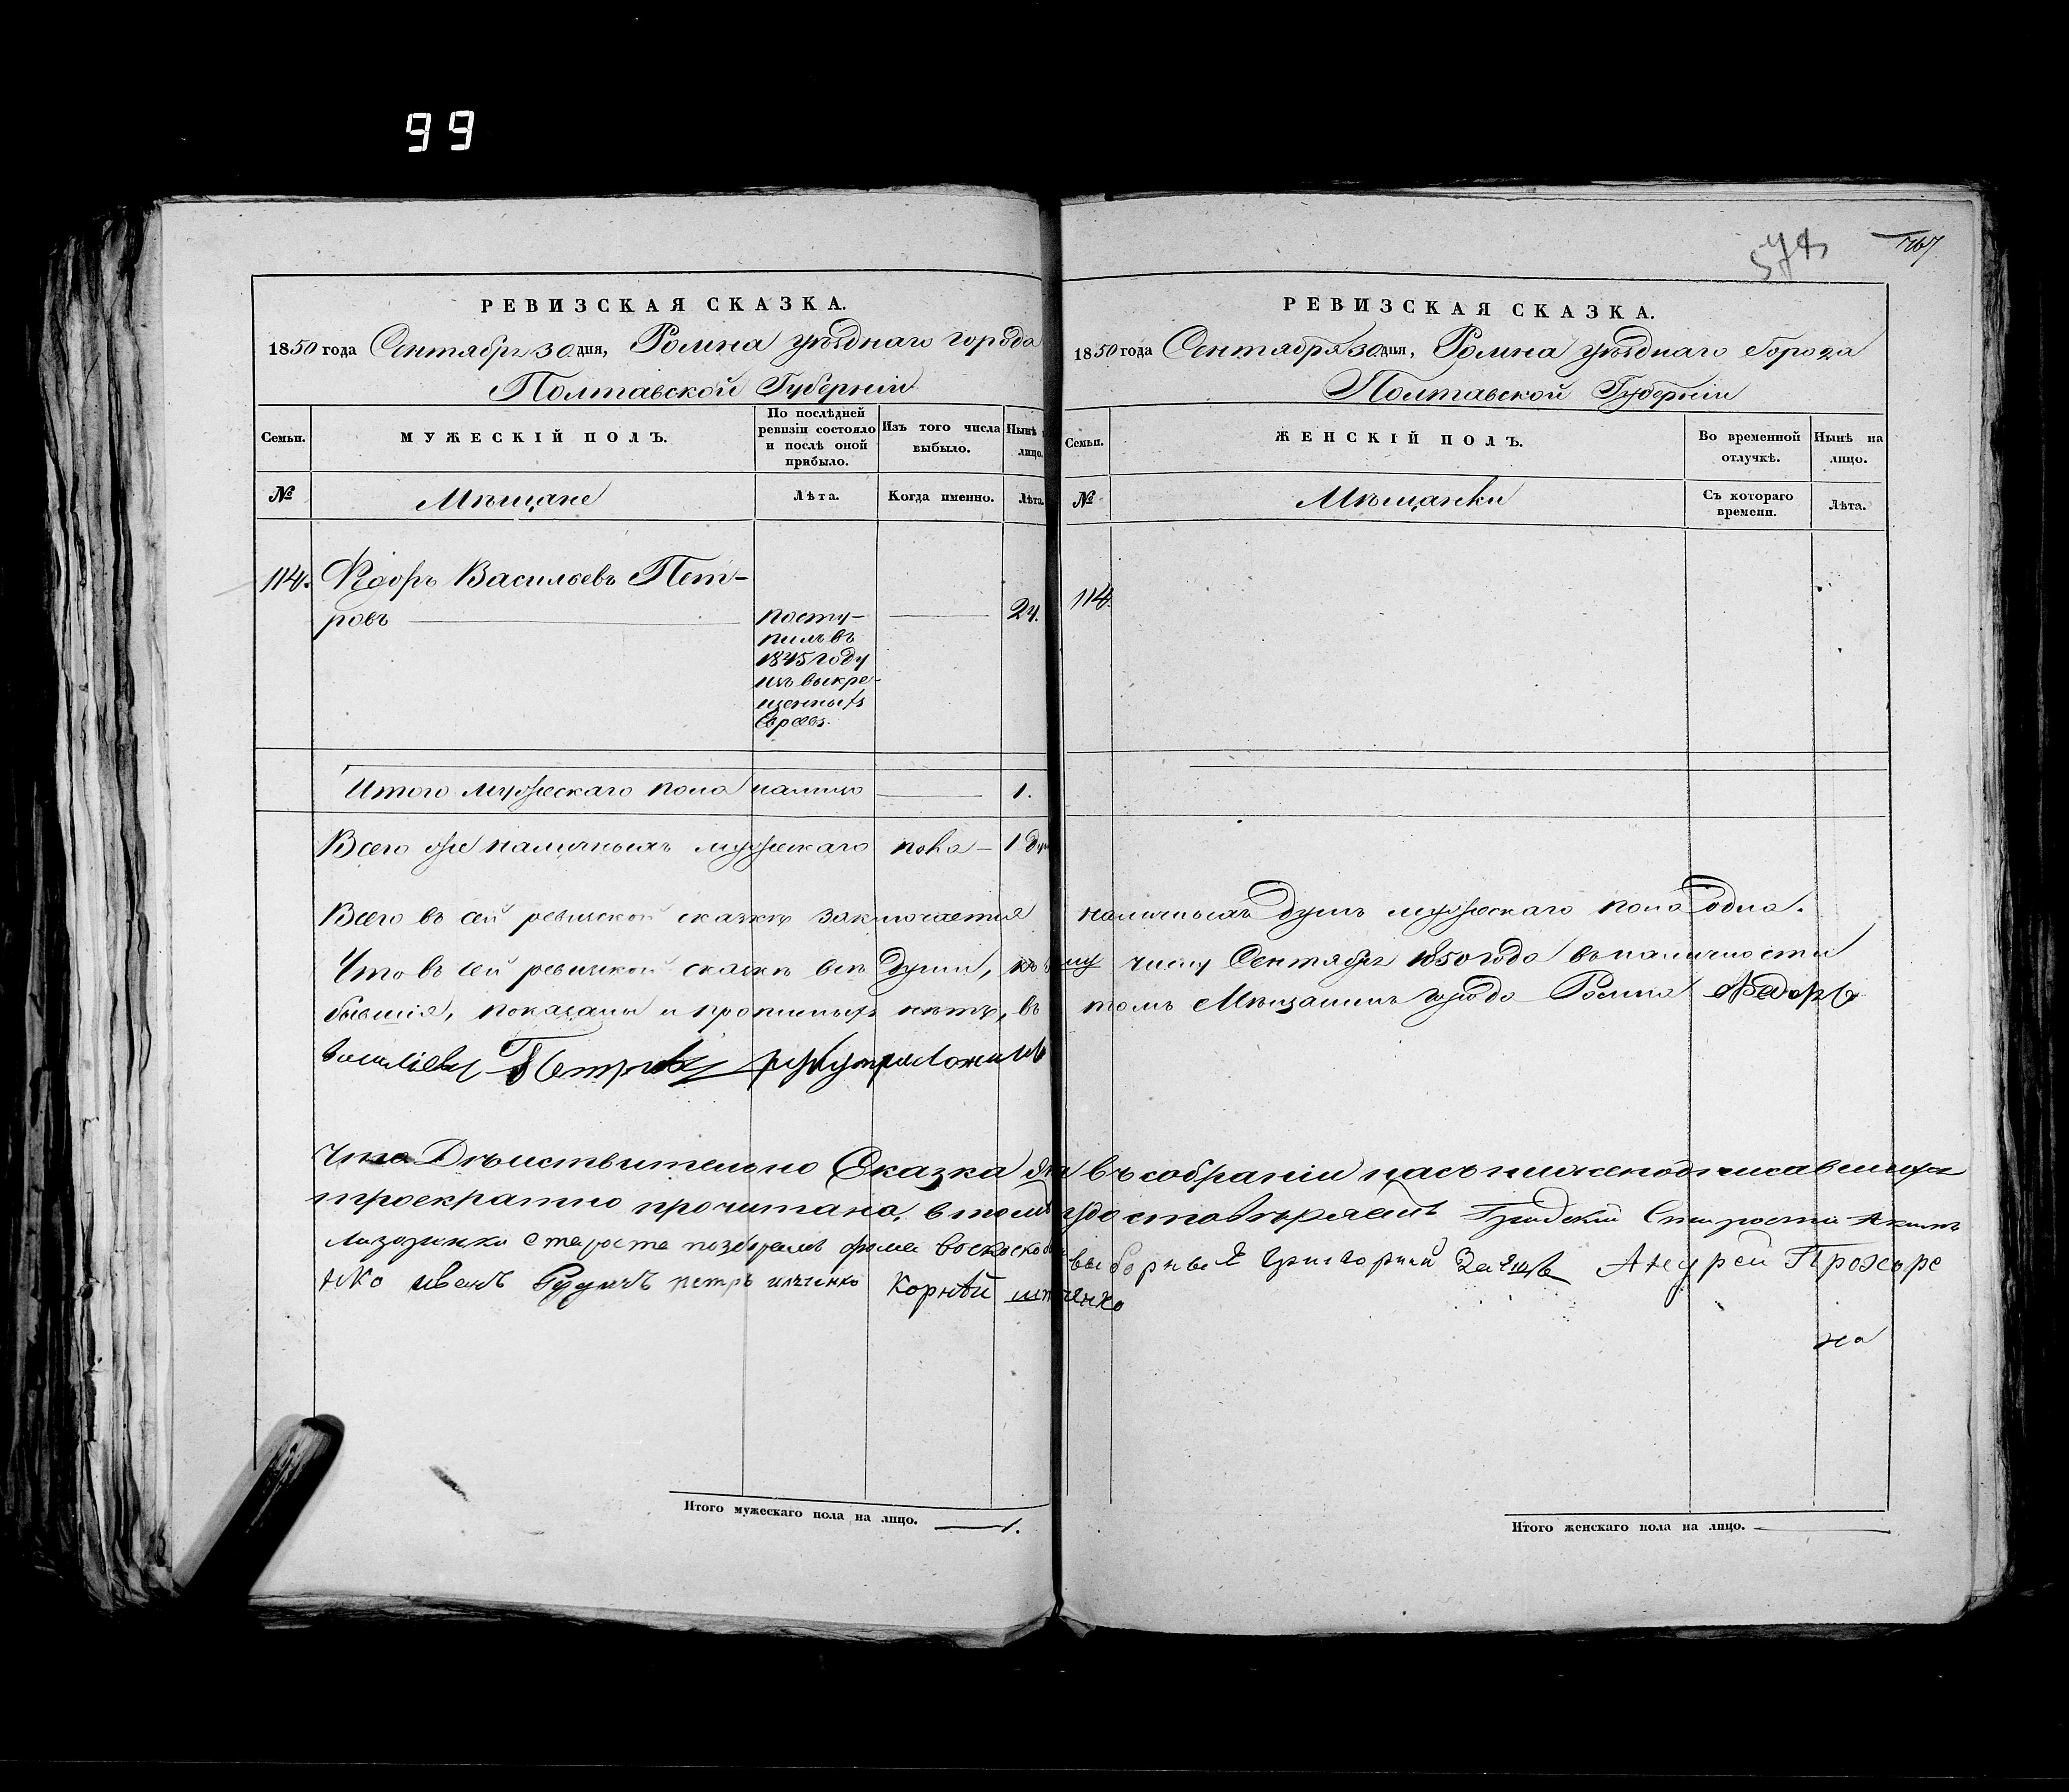 99
РЕВИЗСКАЯ СКАЗКА.
1850 года Сентября 30 дня, Ромна уѣзднаго города
Полтавской Губерніи
Семьи.
МУЖЕСКІЙ ПОЛЪ.
По послѣдней ревизіи состояло и послѣ оной прибыло.
Изъ того числа выбыло.
Нынѣ
лицо.
№
Мѣщане
Лѣта.
Когда именно.
Лѣта.
114. Ѳедоръ Васильевъ Пет-
ровъ
посту-
пилъ въ
1845 году
изъ выкре-
щенныхъ
Евреевъ.
24.
Итого мужескаго пола налицо 1.
Всего же наличныхъ мужескаго пола - 1 душ
Всего въ сей ревизской сказкѣ заключается
Что въ сей ревизской сказкѣ всѣ души, къ
бывшія, показаны и прописныхъ нѣтъ, въ
Васильевъ Петровъ руку приложилъ
Что Дѣиствительно Сказка
троекратно прочитана, в томъ
Лазаренко староста
Иванъ Рудичъ петръ ильченко Корнѣй
Итого мужескаго пола на лицо. 1.
574
767
РЕВИЗСКАЯ СКАЗКА.
1850 года Сентября 30 дня, Ромна уѣзднаго города
Полтавской Губерніи
Семьи.
ЖЕНСКІЙ ПОЛЪ.
Во временной отлучкѣ.
Нынѣ на лицо.
№
Мѣщанки
Съ котораго времени.
Лѣта.
114.
наличныхъ душъ мужескаго пола одна.
числу Сентября 1850 года въ наличности
томъ Мѣщанинъ города Ромна Ѳедоръ
въ собраніи насъ нижеподписавшихъ
удостовѣряемъ Градскій Староста Акимъ
выборные Григорий Заецъ Андрей Прохоре
нко
Итого женскаго пола на лицо.